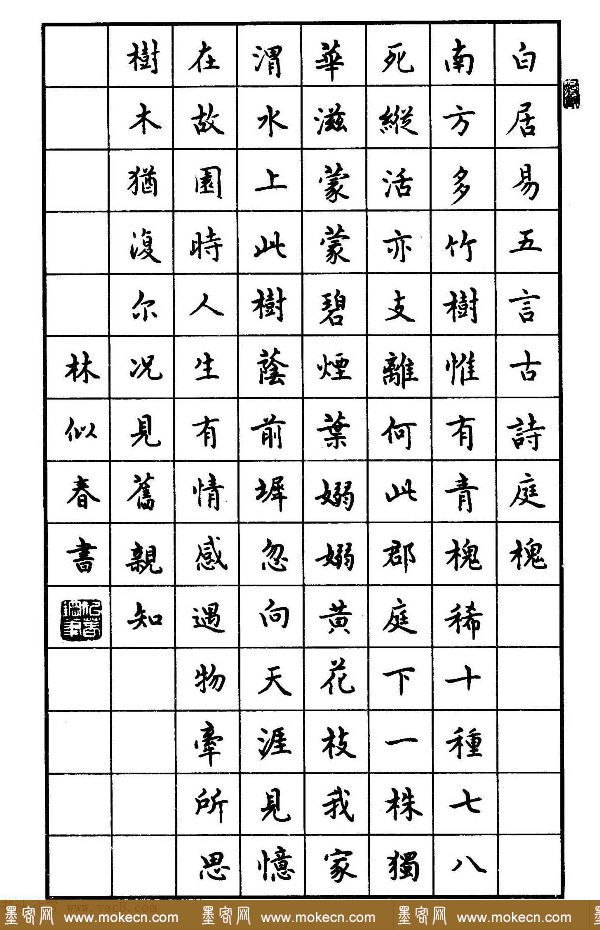 白居易五言古詩庭槐
南方多竹樹惟有青槐稀十種七八
死縱活亦支離何此郡庭下一株獨
華滋蒙蒙碧煙葉嫋嫋黃花枝我家
渭水上此樹蔭前墀忽向天涯見憶
在故園時人生有情感遇物牽所思
樹木猶復尔况見舊親知
林似春書
墨客网 www.mokecn.com 墨客网 www.mokecn.com 墨客网 www.mokecn.com